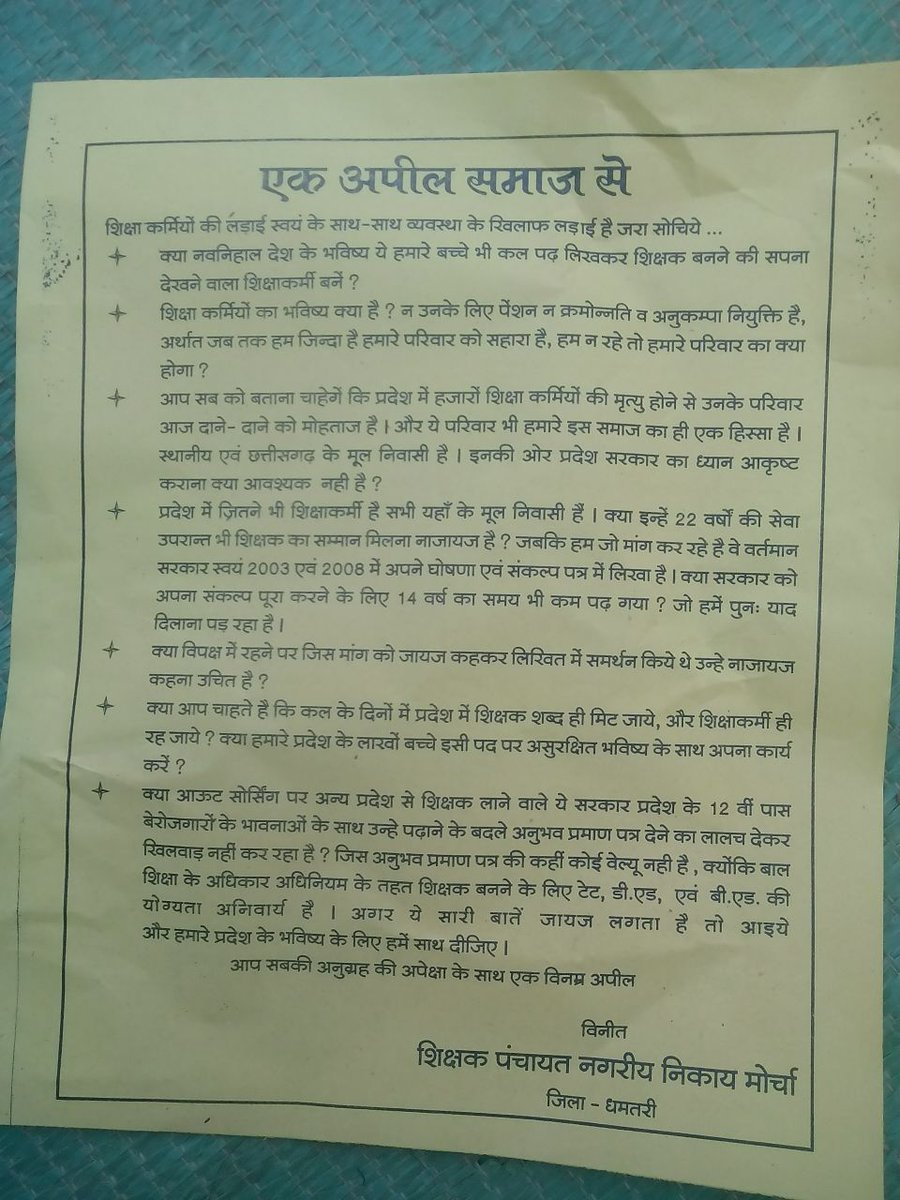 एक अपील समाज से
शिक्षा कर्मियों की लड़ाई स्वयं के साथ-साथ व्यवस्था के खिलाफ लड़ाई है जरा सोचिये ...
क्या नवनिहाल देश के भविष्य ये हमारे बच्चे भी कल पढ़ लिखकर शिक्षक बनने की सपना
देखने वाला शिक्षाकर्मी बनें ?
शिक्षा कर्मियों का भविष्य क्या है ? न उनके लिए पेंशन न क्रमोन्नति व अनुकम्पा नियुक्ति है,
अर्थात जब तक हम जिन्दा है हमारे परिवार को सहारा है, हम न रहे तो हमारे परिवार का क्या
होगा ?
आप सब को बताना चाहेगें कि प्रदेश में हजारों शिक्षा कर्मियों की मृत्यु होने से उनके परिवार
आज दाने- दाने को मोहताज है । और ये परिवार भी हमारे इस समाज का ही एक हिस्सा है ।
स्थानीय एवं छत्तीसगढ़ के मूल निवासी है । इनकी ओर प्रदेश सरकार का ध्यान आकृष्ट
कराना क्या आवश्यक नही है ?
प्रदेश में जितने भी शिक्षाकर्मी है सभी यहाँ के मूल निवासी हैं । क्या इन्हें 22 वर्षो की सेवा
उपरान्त भी शिक्षक का सम्मान मिलना नाजायज है ? जबकि हम जो मांग कर रहे है वे वर्तमान
सरकार स्वयं 2003 एवं 2008 में अपने घोषणा एवं संकल्प पत्र में लिखा है । क्या सरकार को
अपना संकल्प पूरा करने के लिए 14 वर्ष का समय भी कम पढ़ गया ? जो हमें पुनः याद
दिलाना पड़ रहा है ।
क्या विपक्ष में रहने पर जिस मांग को जायज कहकर लिखित में समर्थन किये थे उन्हे नाजायज
कहना उचित है ?
क्या आप चाहते है कि कल के दिनों में प्रदेश में शिक्षक शब्द ही मिट जाये, और शिक्षाकर्मी ही
रह जाये ? क्या हमारे प्रदेश के लाखों बच्चे इसी पद पर असुरक्षित भविष्य के साथ अपना कार्य
करें ?
क्या आऊट सोर्सिंग पर अन्य प्रदेश से शिक्षक लाने वाले ये सरकार प्रदेश के 12 वीं पास
बेरोजगारों के भावनाओं के साथ उन्हे पढ़ाने के बदले अनुभव प्रमाण पत्र देने का लालच देकर
खिलवाड़ नहीं कर रहा है ? जिस अनुभव प्रमाण पत्र की कहीं कोई वेल्यू नही है , क्योंकि बाल
शिक्षा के अधिकार अधिनियम के तहत शिक्षक बनने के लिए टेट, डी.एड, एवं बी.एड. की
योग्यता अनिवार्य है । अगर ये सारी बातें जायज लगता है तो आइये
और हमारे प्रदेश के भविष्य के लिए हमें साथ दीजिए ।
आप सबकी अनुग्रह की अपेक्षा के साथ एक विनम्र अपील
विनीत
शिक्षक पंचायत नगरीय निकाय मोर्चा
जिला - धमतरी